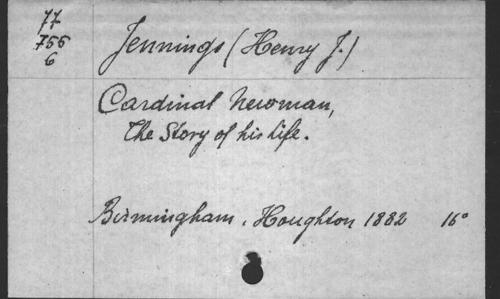 77
755
6
Jennings (Henry J.)
Cardinal Newman,
The Story of his life.
Birmingham, Houghton 1882 16°